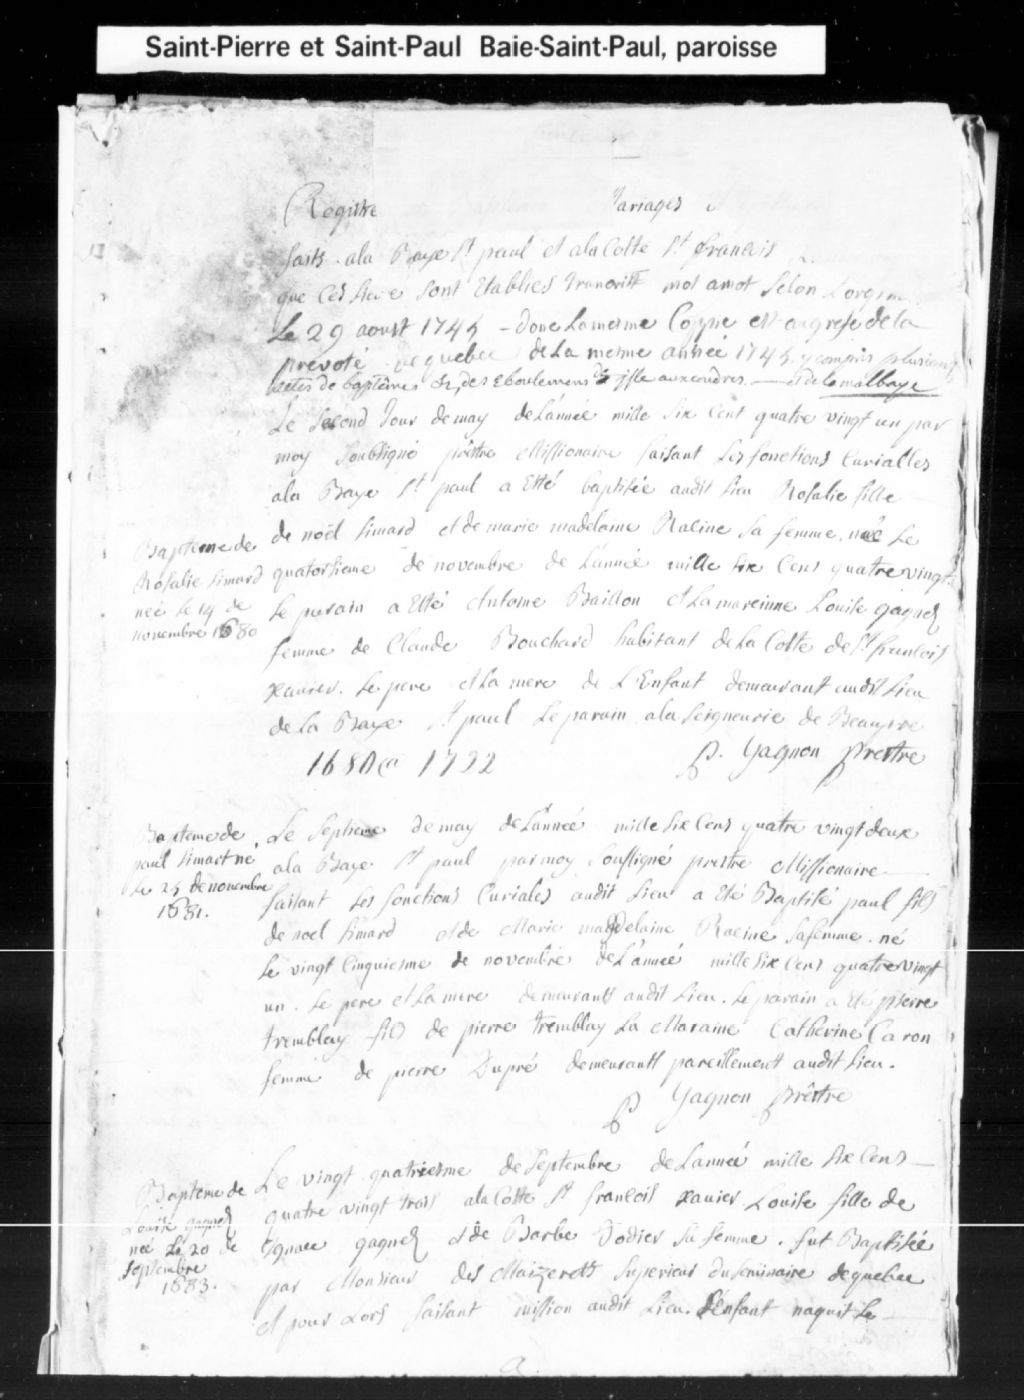 Saint-Pierre et Saint-Paul Baie-Saint-Paul, paroisse
Registre Mariages
faits ala Baye St paul et ala Coste St francois
que ces lieux sont Etablies transcritt mot amot Selon Lorgin
Le 29 aoust 1745 - dont Lamesme Coppie est augrefe de la
prevoté de quebec de La mesme année 1745. y compris plusieurs
actes de baptême de, des Eboulemens de isle aux coudres — et de la malbaye
Le Second Jour de may de L'année mille Six Cent quatre vingt un par
moy Soubsigné prêtre Missionaire faisant Les fonctions Curialles
ala Baye St paul a Eté baptisée audit Lieu Rosalie fille
de noël Simard et de marie madelaine Racine Sa femme, née Le
quatorsieme de novembre de L'année mille Six Cens quatre vingts
Le parain a Eté Antoine Baillon et La mareinne Louise gagnez
femme de Claude Bouchard habitant de La Coste de St francois
xavier. Le pere et La mere de L'Enfant demeurant audit Lieu
de La Baye St paul Le parain ala Seigneurie de Beaupre
Bapteme de
Rosalie Simard
neé Le 14 de
novembre 1680
1680 @ 1722 P. Gagnon Prestre
Bapteme de
paul Simart né
Le 25 de novembre
1681.
Le Septieme de may de L'année mille Six Cens quatre vingt deux
ala Baye St paul par moy Soussigné prestre Missionaire
faisant Les fonctions Curiales audit Lieu a Eté Baptisé paul fils
de noel Simard et de Marie magdelaine Racine Sa femme. né
Le vingt Cinquiesme de novembre de L'année mille Six Cens quatre vingt
un. Le pere et La mere demeurantt audit Lieu. Le parain a Eté pierre
tremblay fils de pierre tremblay La Maraine Catherine Caron
femme de pierre Dupré demeurantt pareillement audit Lieu.
P Gagnon Prêstre
Bapteme de
Louise gagnez
neé Le 20 de
Septembre
1683.
Le vingt quatriesme de Septembre de L'année mille Six Cens
quatre vingt trois ala Coste St francois xavier Louise fille de
Ignace gagnez et de Barbe Dodier Sa femme. fut Baptisée
par Monsieur Des Maizeretts Superieur du Seminaire de quebec
et pour Lors faisant mission audit Lieu. L'enfant naquit Le